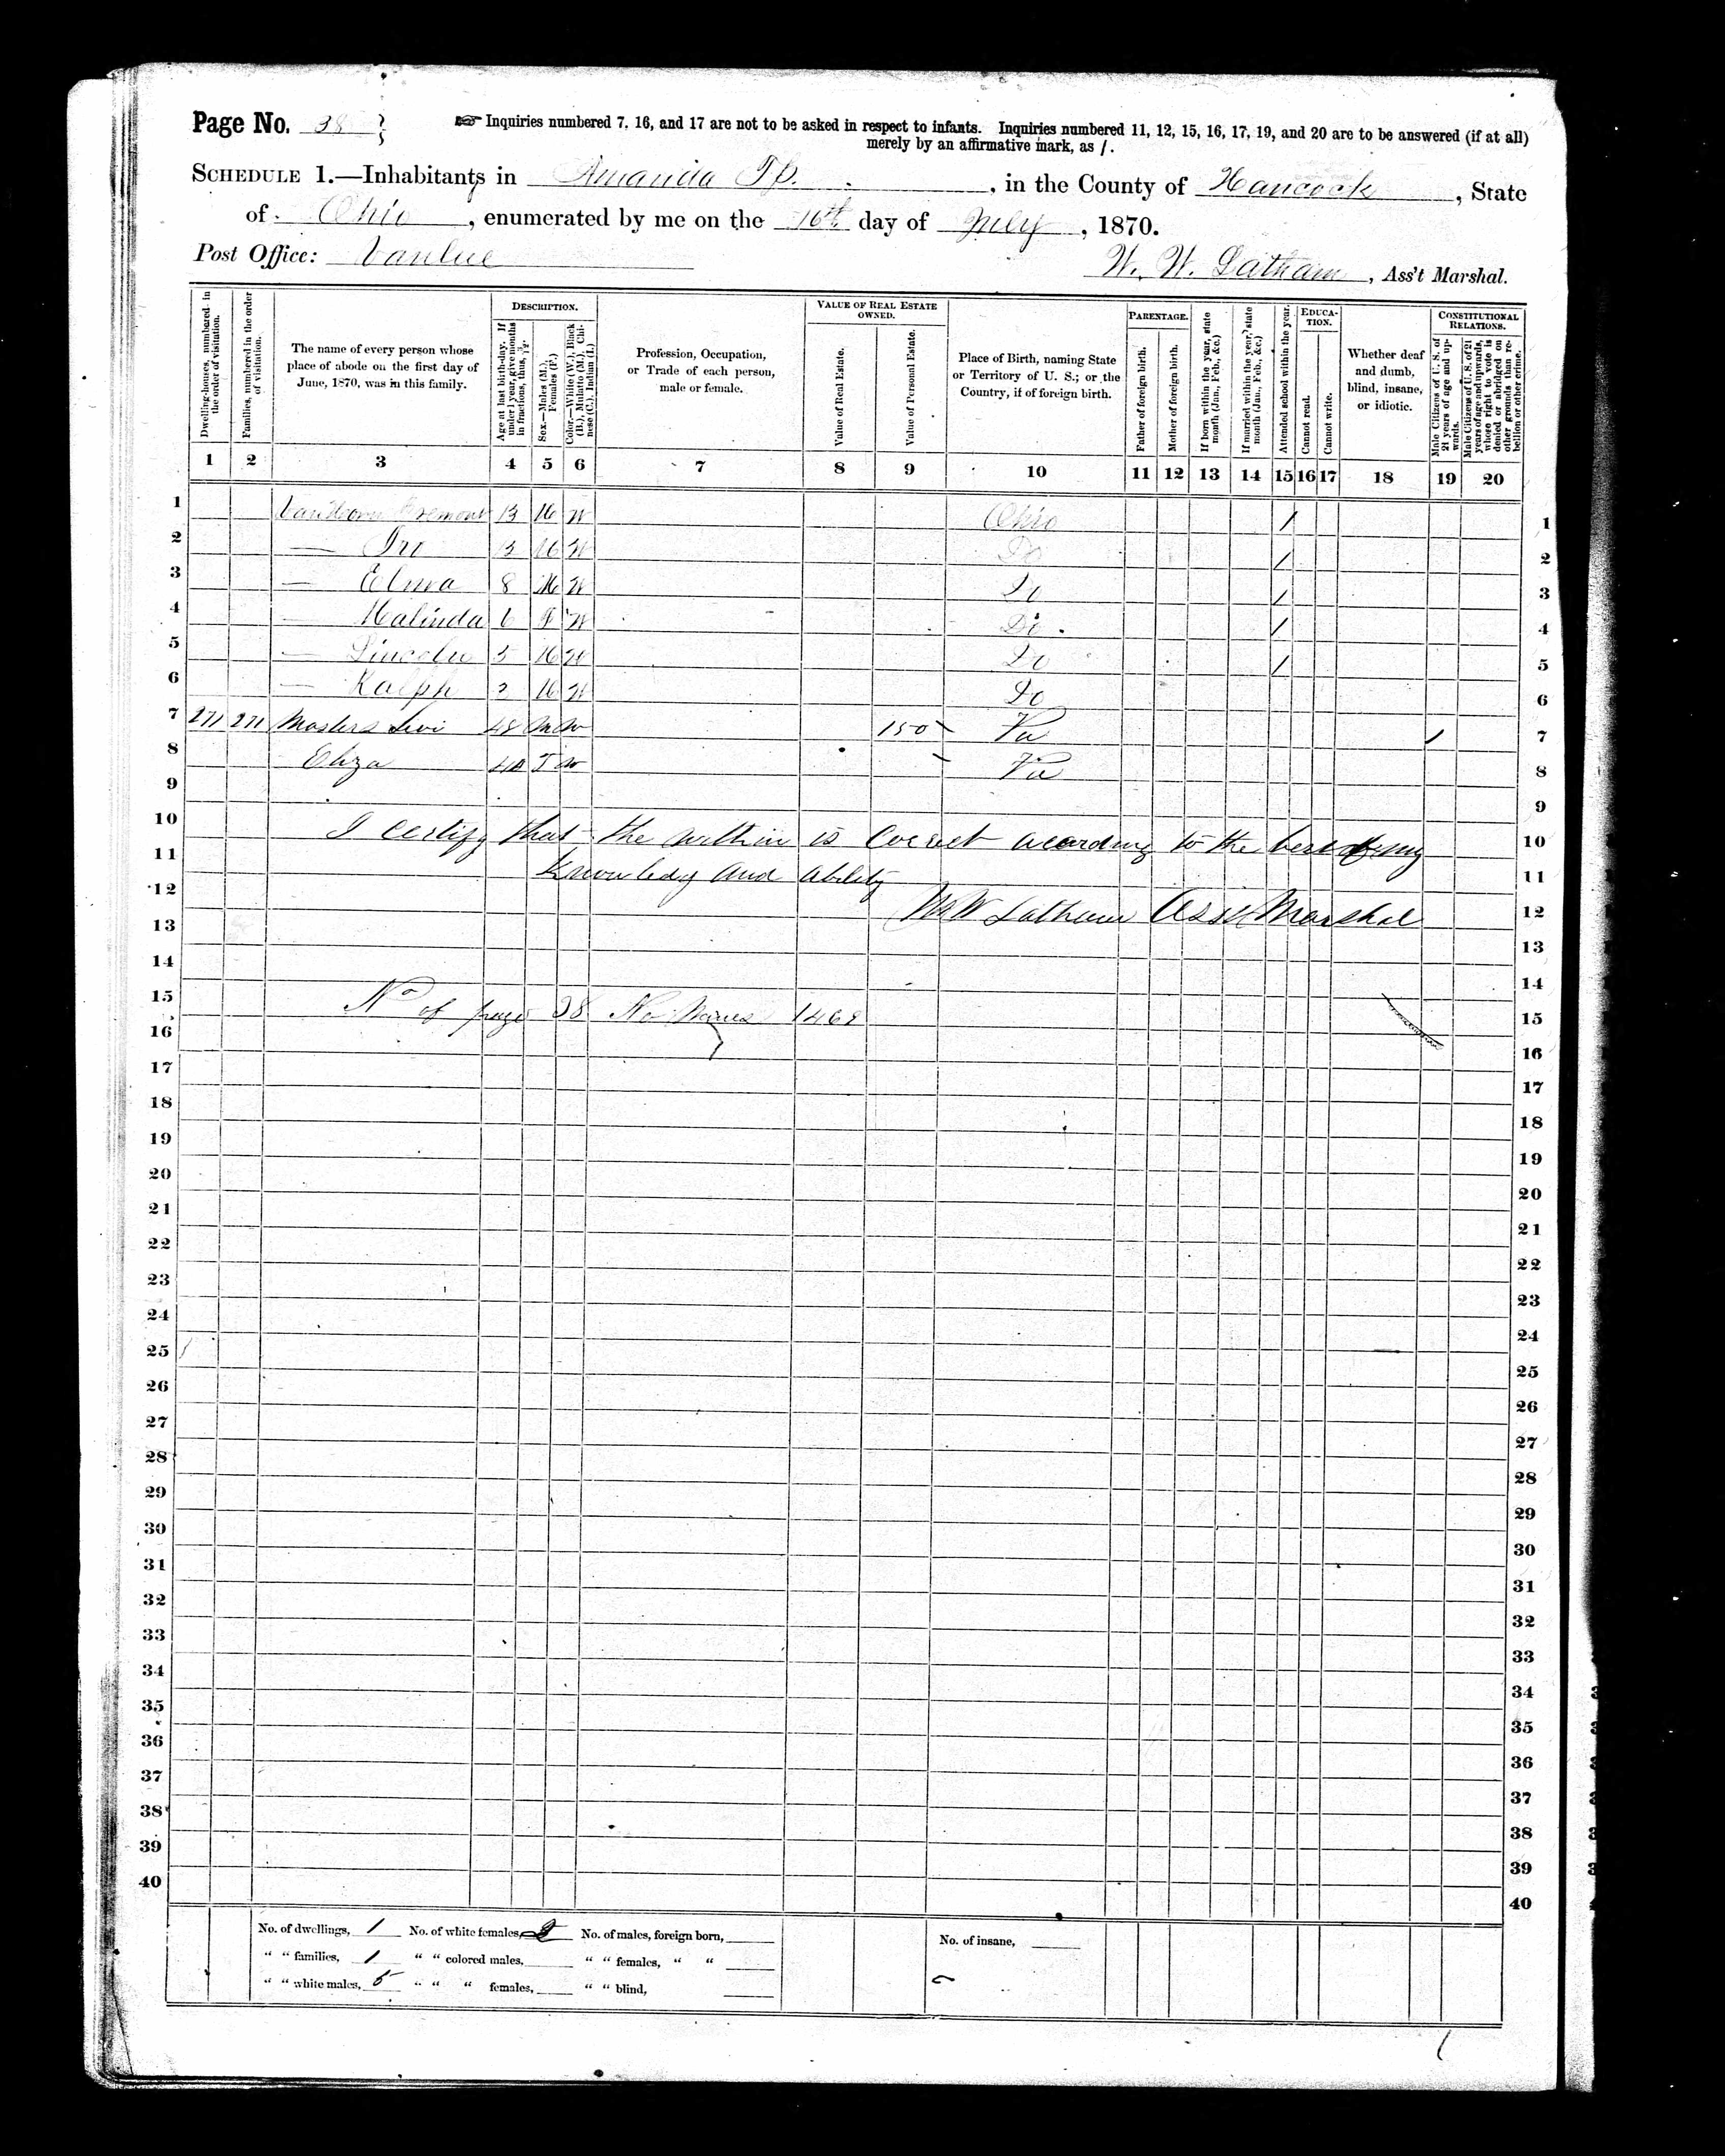 Page No. 38
☞ Inquiries numbered 7, 16, and 17 are not to be asked in respect to infants. Inquiries numbered 11, 12, 15, 16, 17, 19, and 20 are to be answered (if at all)
merely by an affirmative mark, as /.
SCHEDULE 1.—Inhabitants in Amanda Tp. , in the County of Hancock , State
of Ohio , enumerated by me on the 16th day of July , 1870.
Post Office: Vanlue
W. W. Latham , Ass't Marshal.
Dwelling-houses, numbered in the order of visitation.
Families, numbered in the order of visitation.
The name of every person whose place of abode on the first day of June, 1870, was in this family.
DESCRIPTION.
Age at last birth-day. If under 1 year, give months in fractions, thus, 3/12.
Sex.—Males (M.), Females (F.)
Color.—White (W.), Black (B.), Mulatto (M.), Chinese (C.), Indian (I.)
Profession, Occupation, or Trade of each person, male or female.
VALUE OF REAL ESTATE OWNED.
Value of Real Estate.
Value of Personal Estate.
Place of Birth, naming State or Territory of U. S.; or the Country, if of foreign birth.
PARENTAGE.
Father of foreign birth.
Mother of foreign birth.
If born within the year, state month (Jan., Feb., &c.)
If married within the year, state month (Jan., Feb., &c.)
Attended school within the year.
EDUCATION.
Cannot read.
Cannot write.
Whether deaf and dumb, blind, insane, or idiotic.
CONSTITUTIONAL RELATIONS.
Male Citizens of U. S. of 21 years of age and upwards.
Male Citizens of U. S. of 21 years of age and upwards, whose right to vote is denied or abridged on other grounds than rebellion or other crime.
1 2 3 4 5 6 7 8 9 10 11 12 13 14 15 16 17 18 19 20
1 VanHorn Fremont 13 M W Ohio / 1
2 — 13 M W Do / 2
3 — 8 M W Do / 3
4 — Malinda 6 F W Do / 4
5 — Lincoln 5 M W Do / 5
6 — Ralph 2 M W Do 6
7 271 271 Masters Levi 48 M W 150 Va / 7
8 Eliza F W Va 8
9 9
10 I certify that the within is Correct acording to the best of my 10
11 Knowledg and ability 11
12 W W Latham Asst Marshal 12
13 13
14 14
15 No of page 38 No Names 15
16 16
17 17
18 18
19 19
20 20
21 21
22 22
23 23
24 24
25 25
26 26
27 27
28 28
29 29
30 30
31 31
32 32
33 33
34 34
35 35
36 36
37 37
38 38
39 39
40 40
No. of dwellings, 1 No. of white females, No. of males, foreign born, No. of insane,
“ “ families, 1 “ “ colored males, “ “ females, “ “
“ “ white males, 5 “ “ “ females, “ “ blind,